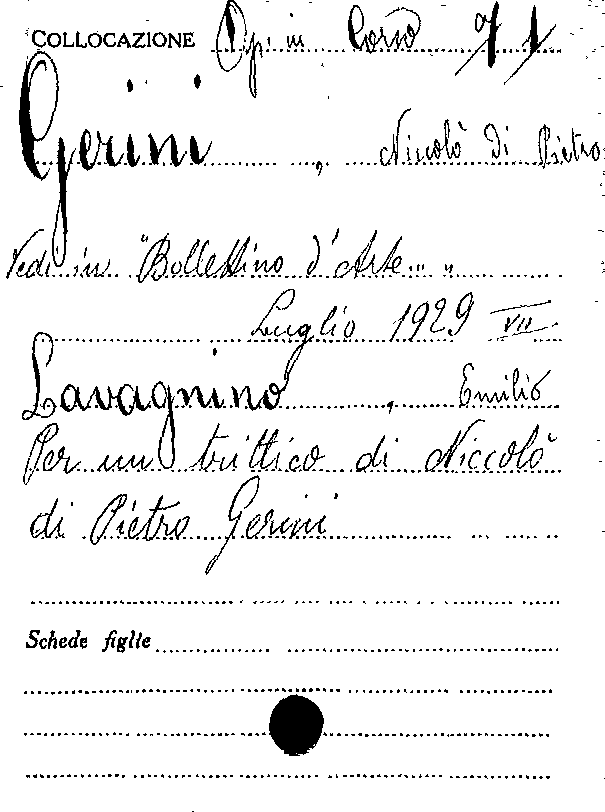 COLLOCAZIONE Op. in Corso 9/1
Gerini, Niccolò di Pietro
Vedi in "Bollettino d'Arte"
Luglio 1929 VII
Lavagnino, Emilio
Per un trittico di Niccolò
di Pietro Gerini
Schede figlie